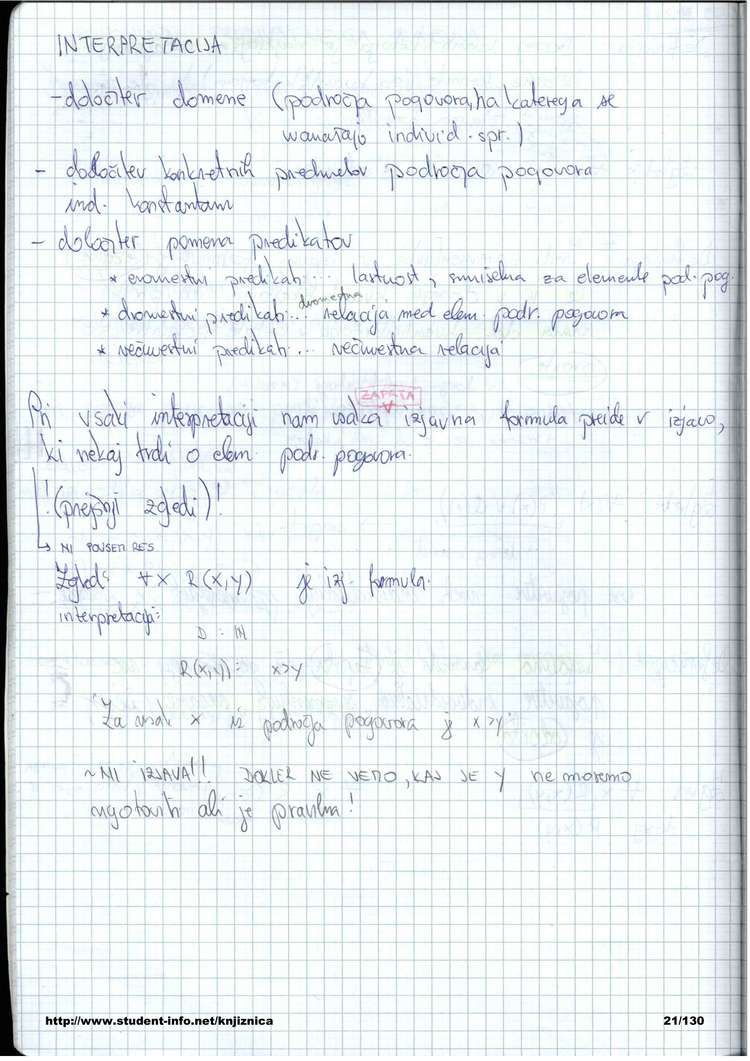 INTERPRETACIJA
- določitev domene (področja pogovora, na katerega se
nanašajo individ. spr.)
- določitev konkretnih predmetov področja pogovora
ind. konstantam
- določitev pomena predikatov
* enomestni predikati ... lastnost, smiselna za elemente pod. pog.
dvomestna
* dvomestni predikati ... relacija med elem. podr. pogovora
* večmestni predikati ... večmestna relacija
ZAPRTA
Pri vsaki interpretaciji nam vsaka izjavna formula preide v izjavo,
ki nekaj trdi o elem. podr. pogovora.
!(prejšnji zgledi)!
↳ NI POVSEM RES
Zgled: ∀x R(x,y) je izj. formula.
interpretacija:
D : ℕ
R(x,y): x>y
"Za vsak x iz področja pogovora je x>y"
~ NI IZJAVA!! DOKLER NE VEMO, KAJ JE Y ne moremo
ugotoviti ali je pravilna!
http://www.student-info.net/knjiznica
21/130